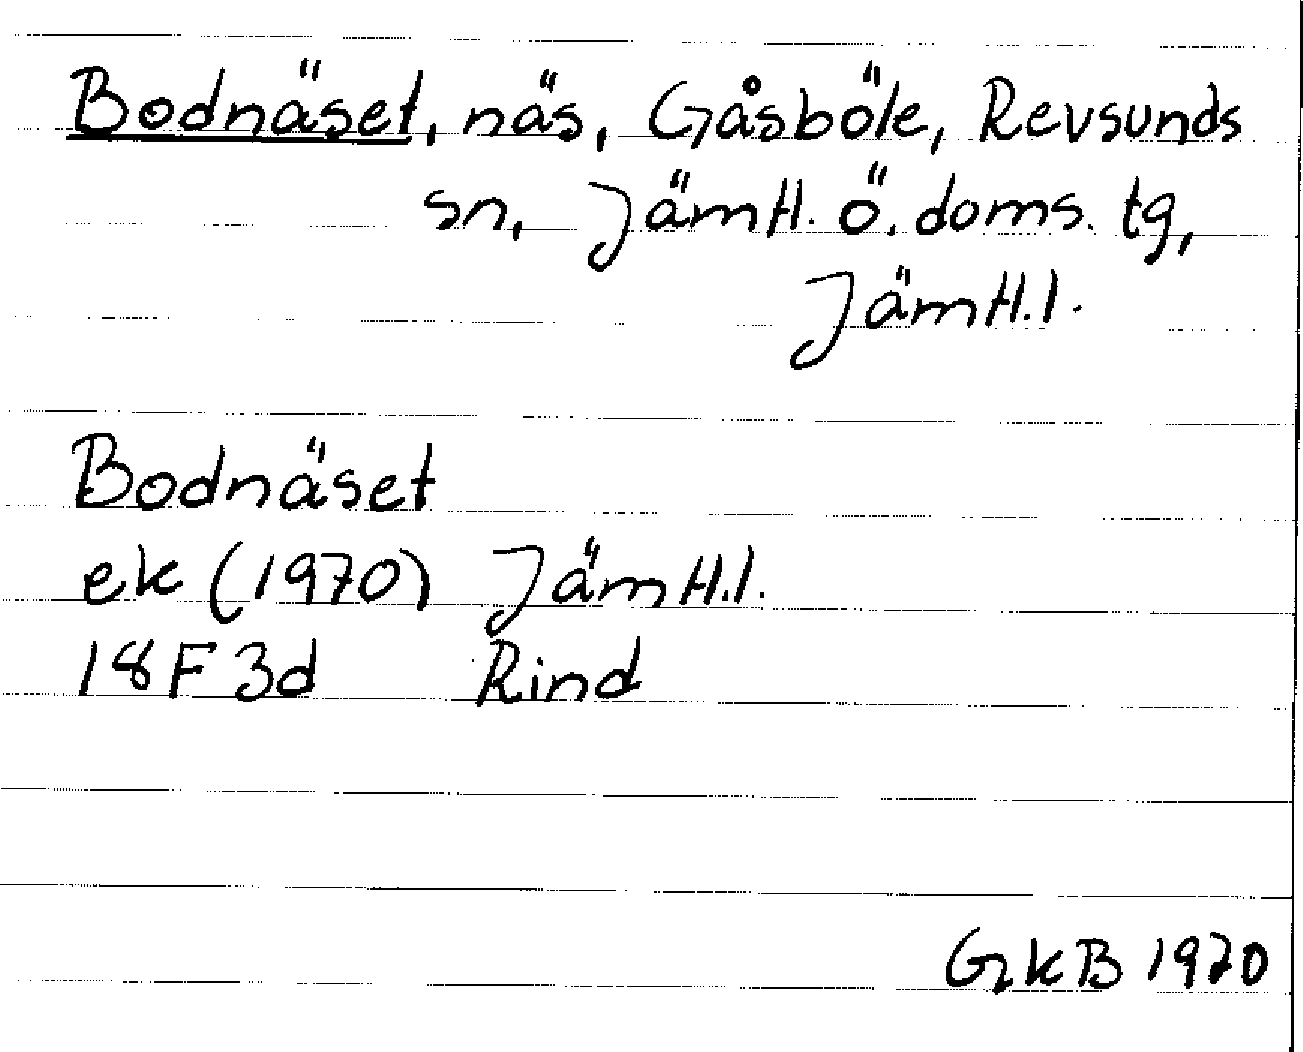 Bodnäset, näs, Gåsböle, Revsunds
sn, Jämtl. ö. doms. tg,
Jämtl. l.
Bodnäset
ek (1970) Jämtl. l.
18F 3d Rind
GkB 1970